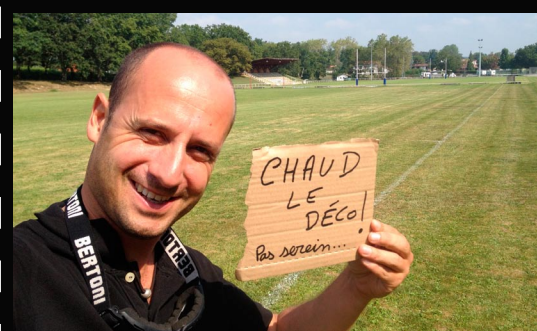 CHAUD
LE
DÉCO!
Pas serein...
BERTONI
BERTONI
BERTONI